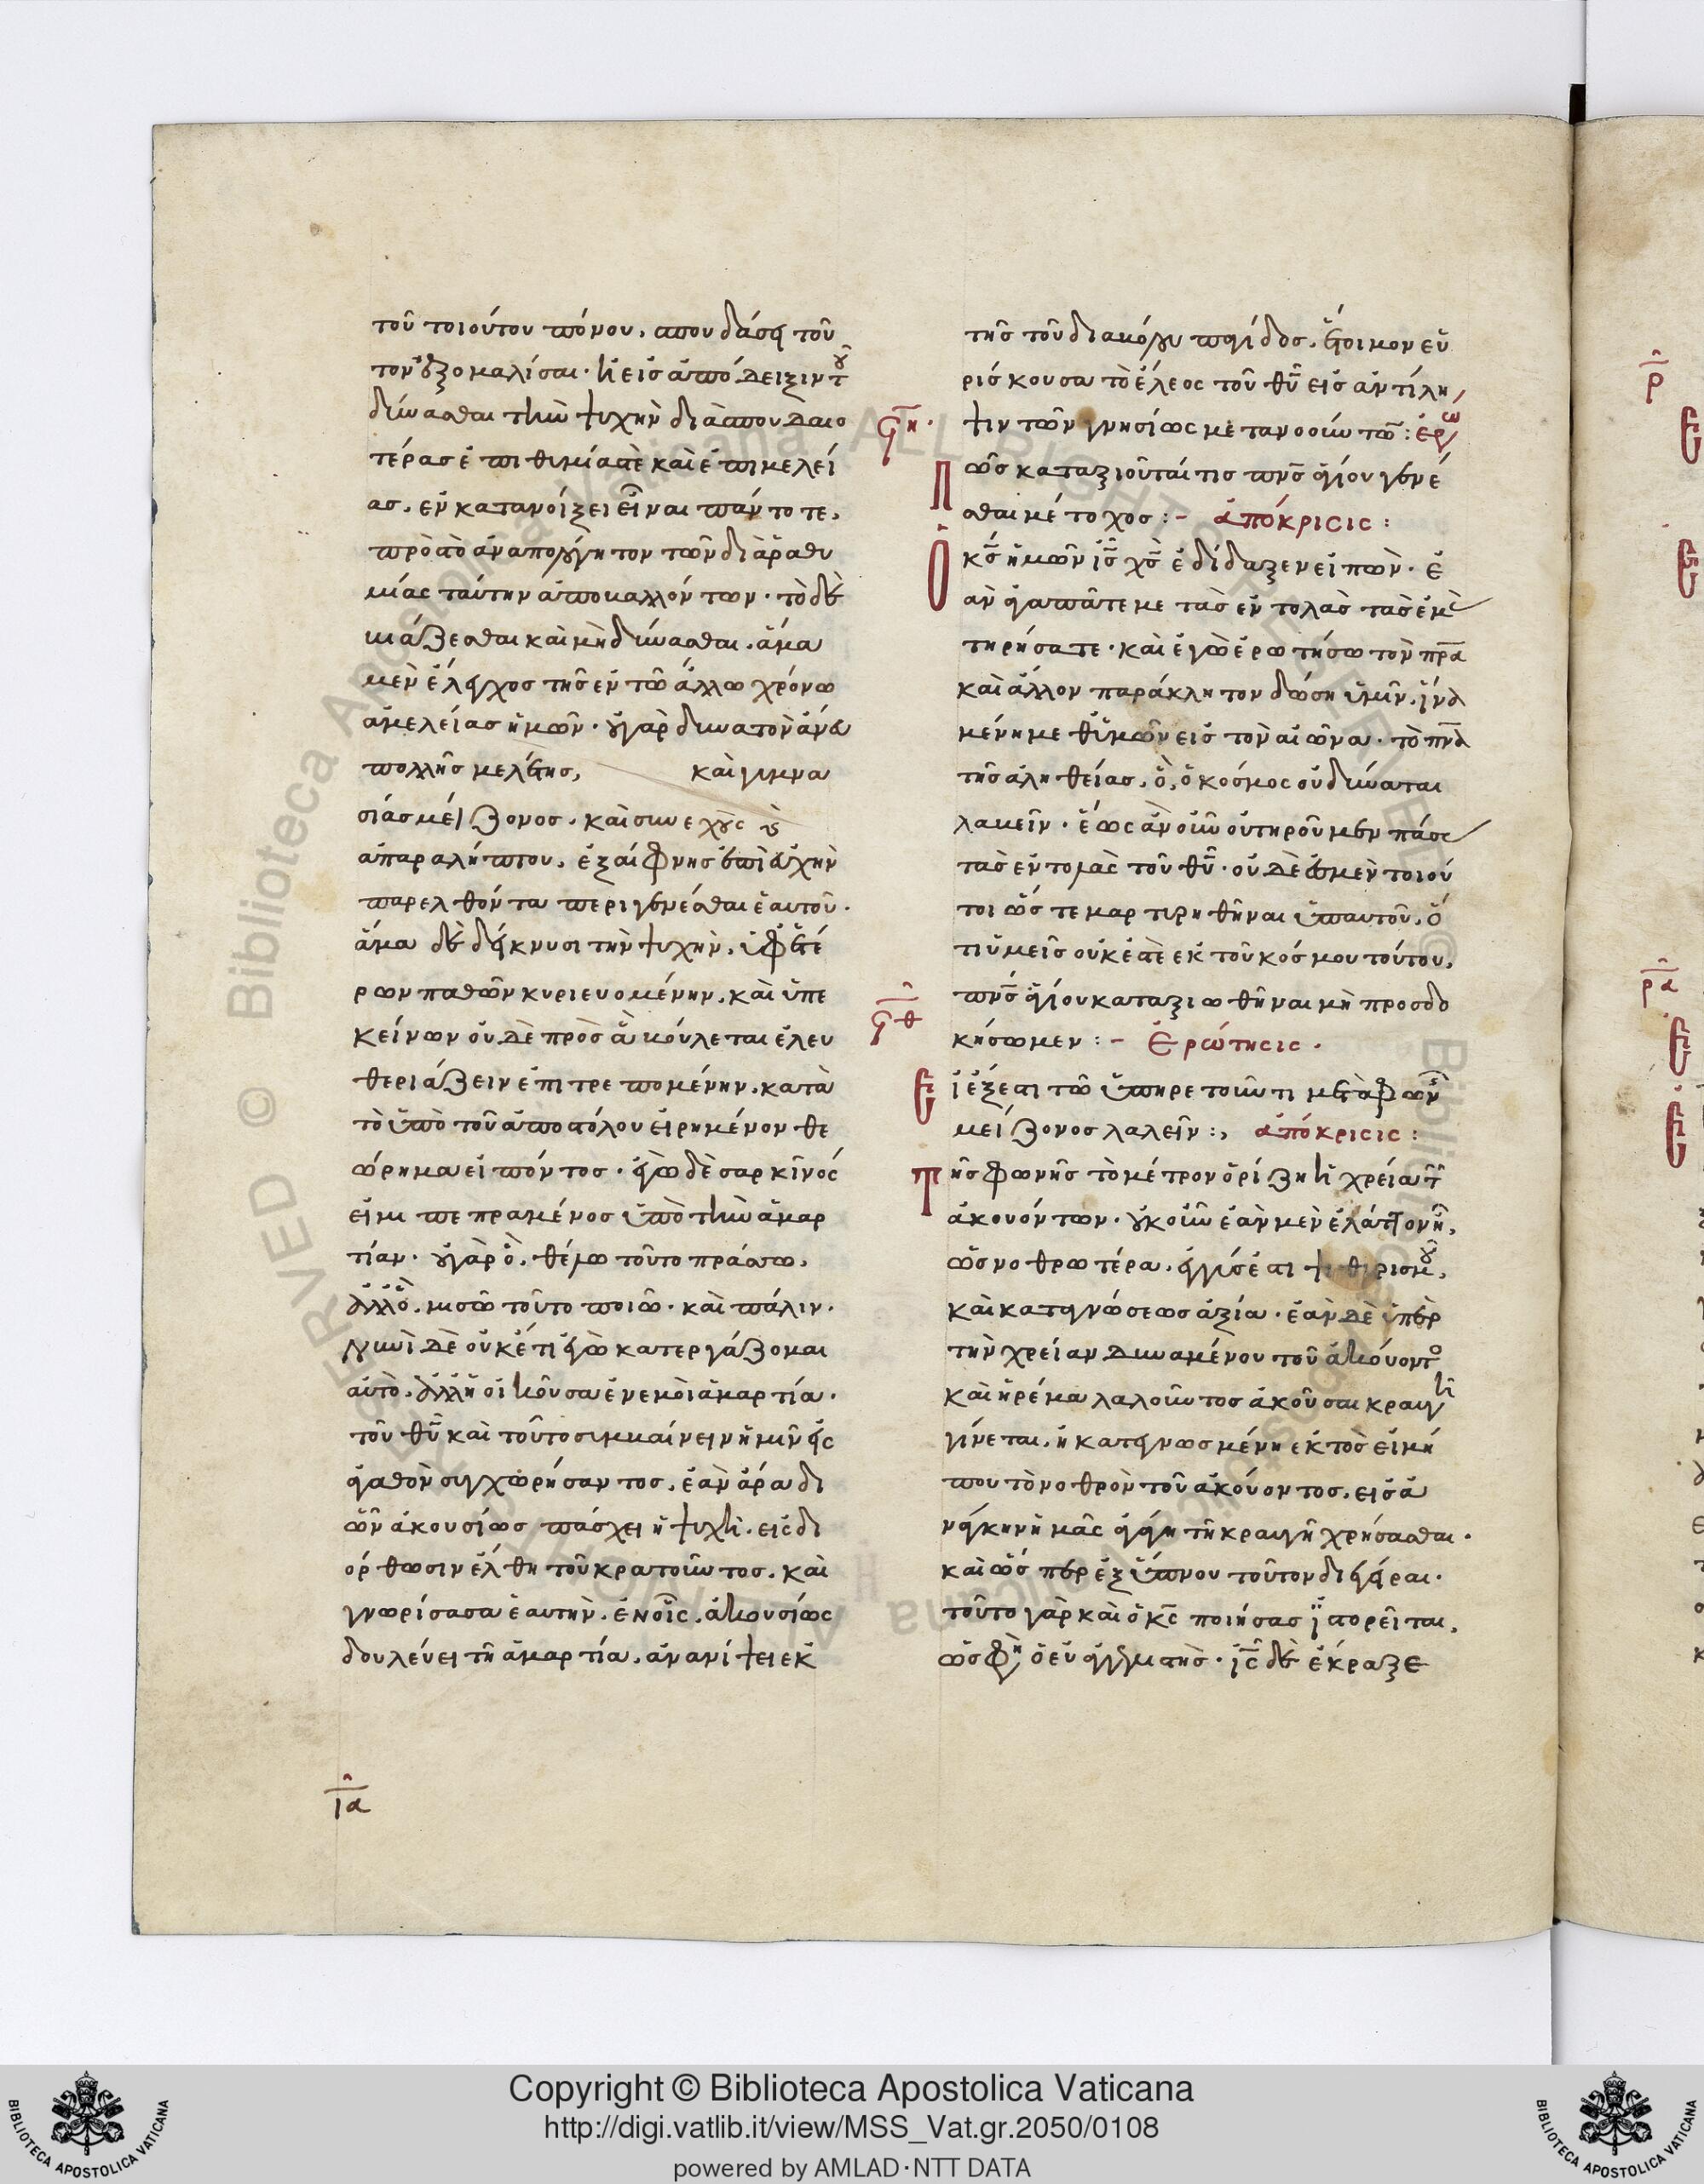 τοῦ τοιούτου πόνου. σπουδάση τοῦ
τον ἐξομαλίσαι. ἡ εἰς ἀπόδειξιν τοῦ
δύνασθαι τὴν ψυχὴν διὰ σπουδαιο
τέρας ἐπιθυμίας τὲ καὶ ἐπιμελεί
ας. ἐν κατανοίξει εἶναι πάντοτε.
πρὸς τὸ ἀναπολόγητον τῶν διὰ ῥαθυ
μίας ταύτην ἀποβαλλόντων. τὸ δὲ
βιάζεσθαι καὶ μὴ δύνασθαι. ἅμα
μὲν ἔλεγχος τῆς ἐν τῶ ἄλλω χρόνω
ἀμελείας ἡμῶν. οὐ γὰρ δυνατὸν ἄνευ
πολλῆς μελέτης, καὶ γυμνα
σίας μείζονος. καὶ συνεχοῦς
ἀπαραλήπτου. ἐξαίφνης ἐπὶ εὐχὴν
παρελθόντα περιγενέσθαι ἑαυτοῦ.
ἅμα δὲ δείκνυσι τὴν ψυχὴν. ὑφ' ἑτέ
ρων παθῶν κυριευομένην. καὶ ὑπ' ἐ
κείνων οὐδὲ πρὸς ἃ βούλεται ἐλευ
θεριάζειν ἐπιτρεπομένην. κατὰ
τὸ ὑπὸ τοῦ ἀποστόλου εἰρημένον θε
ώρημα εἰπόντος. ἐγὼ δὲ σαρκϊνός
εἰμι πεπραμένος ὑπὸ τὴν ἁμαρ
τίαν. οὐ γὰρ ὃ. θέλω τοῦτο πράσσω.
ἀλλ' ὃ. μισῶ τοῦτο ποιῶ. καὶ πάλιν.
νυνὶ δὲ οὐκέτι ἐγὼ κατεργάζομαι
αὐτὸ. ἀλλ' ἡ οἰκοῦσα ἐν ἐμοὶ ἁμαρτία.
τοῦ θυ καὶ τοῦτο συμβαίνειν ἡμῖν εἰς
ἀγαθὸν συγχωρήσαντος. ἐὰν ἄρα δι
ὧν ἀκουσίως πάσχει ἡ ψυχὴ. εἰς δι
όρθωσιν ἔλθη τοῦ κρατοῦντος. καὶ
γνωρίσασα ἑαυτὴν. ἐν οἷς. ἀκουσίως
δουλεύει τῆ ἁμαρτία. ἀνανίψει ἐκ
ια
τῆς τοῦ διαβόλου παγίδος. ἕτοιμον εὑ
ρίσκουσα τὸ ἔλεος τοῦ θυ εἰς ἀντίλη
ψιν τῶν γνησίως μετανοούντων: ἐρω
ϟη
Πῶς καταξιοῦταί τις πνς ἁγίου γενέ
σθαι μέτοχος:- ἀπόκρισις:
Ὁ κς ἡμῶν ις χς ἐδίδαξεν εἰπὼν. ἐ
ὰν ἀγαπᾶτέ με τὰς ἐντολὰς τὰς ἐμὰς
τηρήσατε. καὶ ἐγὼ ἐρωτήσω τὸν πρα
καὶ ἄλλον παράκλητον δώση ὑμῖν. ἵνα
μένη μεθ' ὑμῶν εἰς τὸν αἰῶνα. τὸ πνα
τῆς ἀληθείας. ὃ, ὁ κόσμος οὐ δύναται
λαβεῖν. ἕως ἂν οὖν οὐ τηροῦμεν πάσας
τὰς ἐντολὰς τοῦ θυ. οὐδὲ ἐσμὲν τοιοῦ
τοι ὥστε μαρτυρηθῆναι ὑπ' αὐτοῦ. ὅ
τι ὑμεῖς οὐκ ἐστὲ ἐκ τοῦ κόσμου τούτου.
πνς ἁγίου καταξιωθῆναι μὴ προσδο
ϟθ
κήσωμεν:- Ἐρώτησις.
Εἰ ἔξεστι τῶ ὑπηρετοῦντι μετὰ φωνῆς
μείζονος λαλεῖν:, ἀπόκρισις:
Τῆς φωνῆς τὸ μέτρον ὁρίζει ἡ χρεία τῶν
ἀκουόντων. οὐκοῦν ἐὰν μὲν ἐλάττον ἦ,
ὡς νοθρωτέρα. ἐγγύς ἐστι ψιθυρισμοῦ,
καὶ καταγνώσεως ἀξία. ἐὰν δὲ ὑπὲρ
τὴν χρείαν δυναμένου τοῦ ἀκούοντος
καὶ ἠρέμα λαλοῦντος ἀκοῦσαι κραυγὴ
γίνεται. ἡ κατεγνωσμένη ἐκτὸς εἰ μή
που τὸ νοθρὸν τοῦ ἀκούοντος. εἰς ἀ
νάγκην ἡμᾶς ἀγάγη τῆ κραυγῆ χρήσασθαι.
καὶ ὥσπερ ἐξ ὕπνου τοῦτον διεγεῖραι.
τοῦτο γὰρ καὶ ὁ κς ποιήσας ἱστορεῖται.
ὥς φη ὁ εὐαγγελιστὴς. ις δὲ ἔκραξε
ρ
ρα
Copyright © Biblioteca Apostolica Vaticana
http://digi.vatlib.it/view/MSS_Vat.gr.2050/0108
powered by AMLAD·NTT DATA
BIBLIOTECA APOSTOLICA VATICANA
BIBLIOTECA APOSTOLICA VATICANA